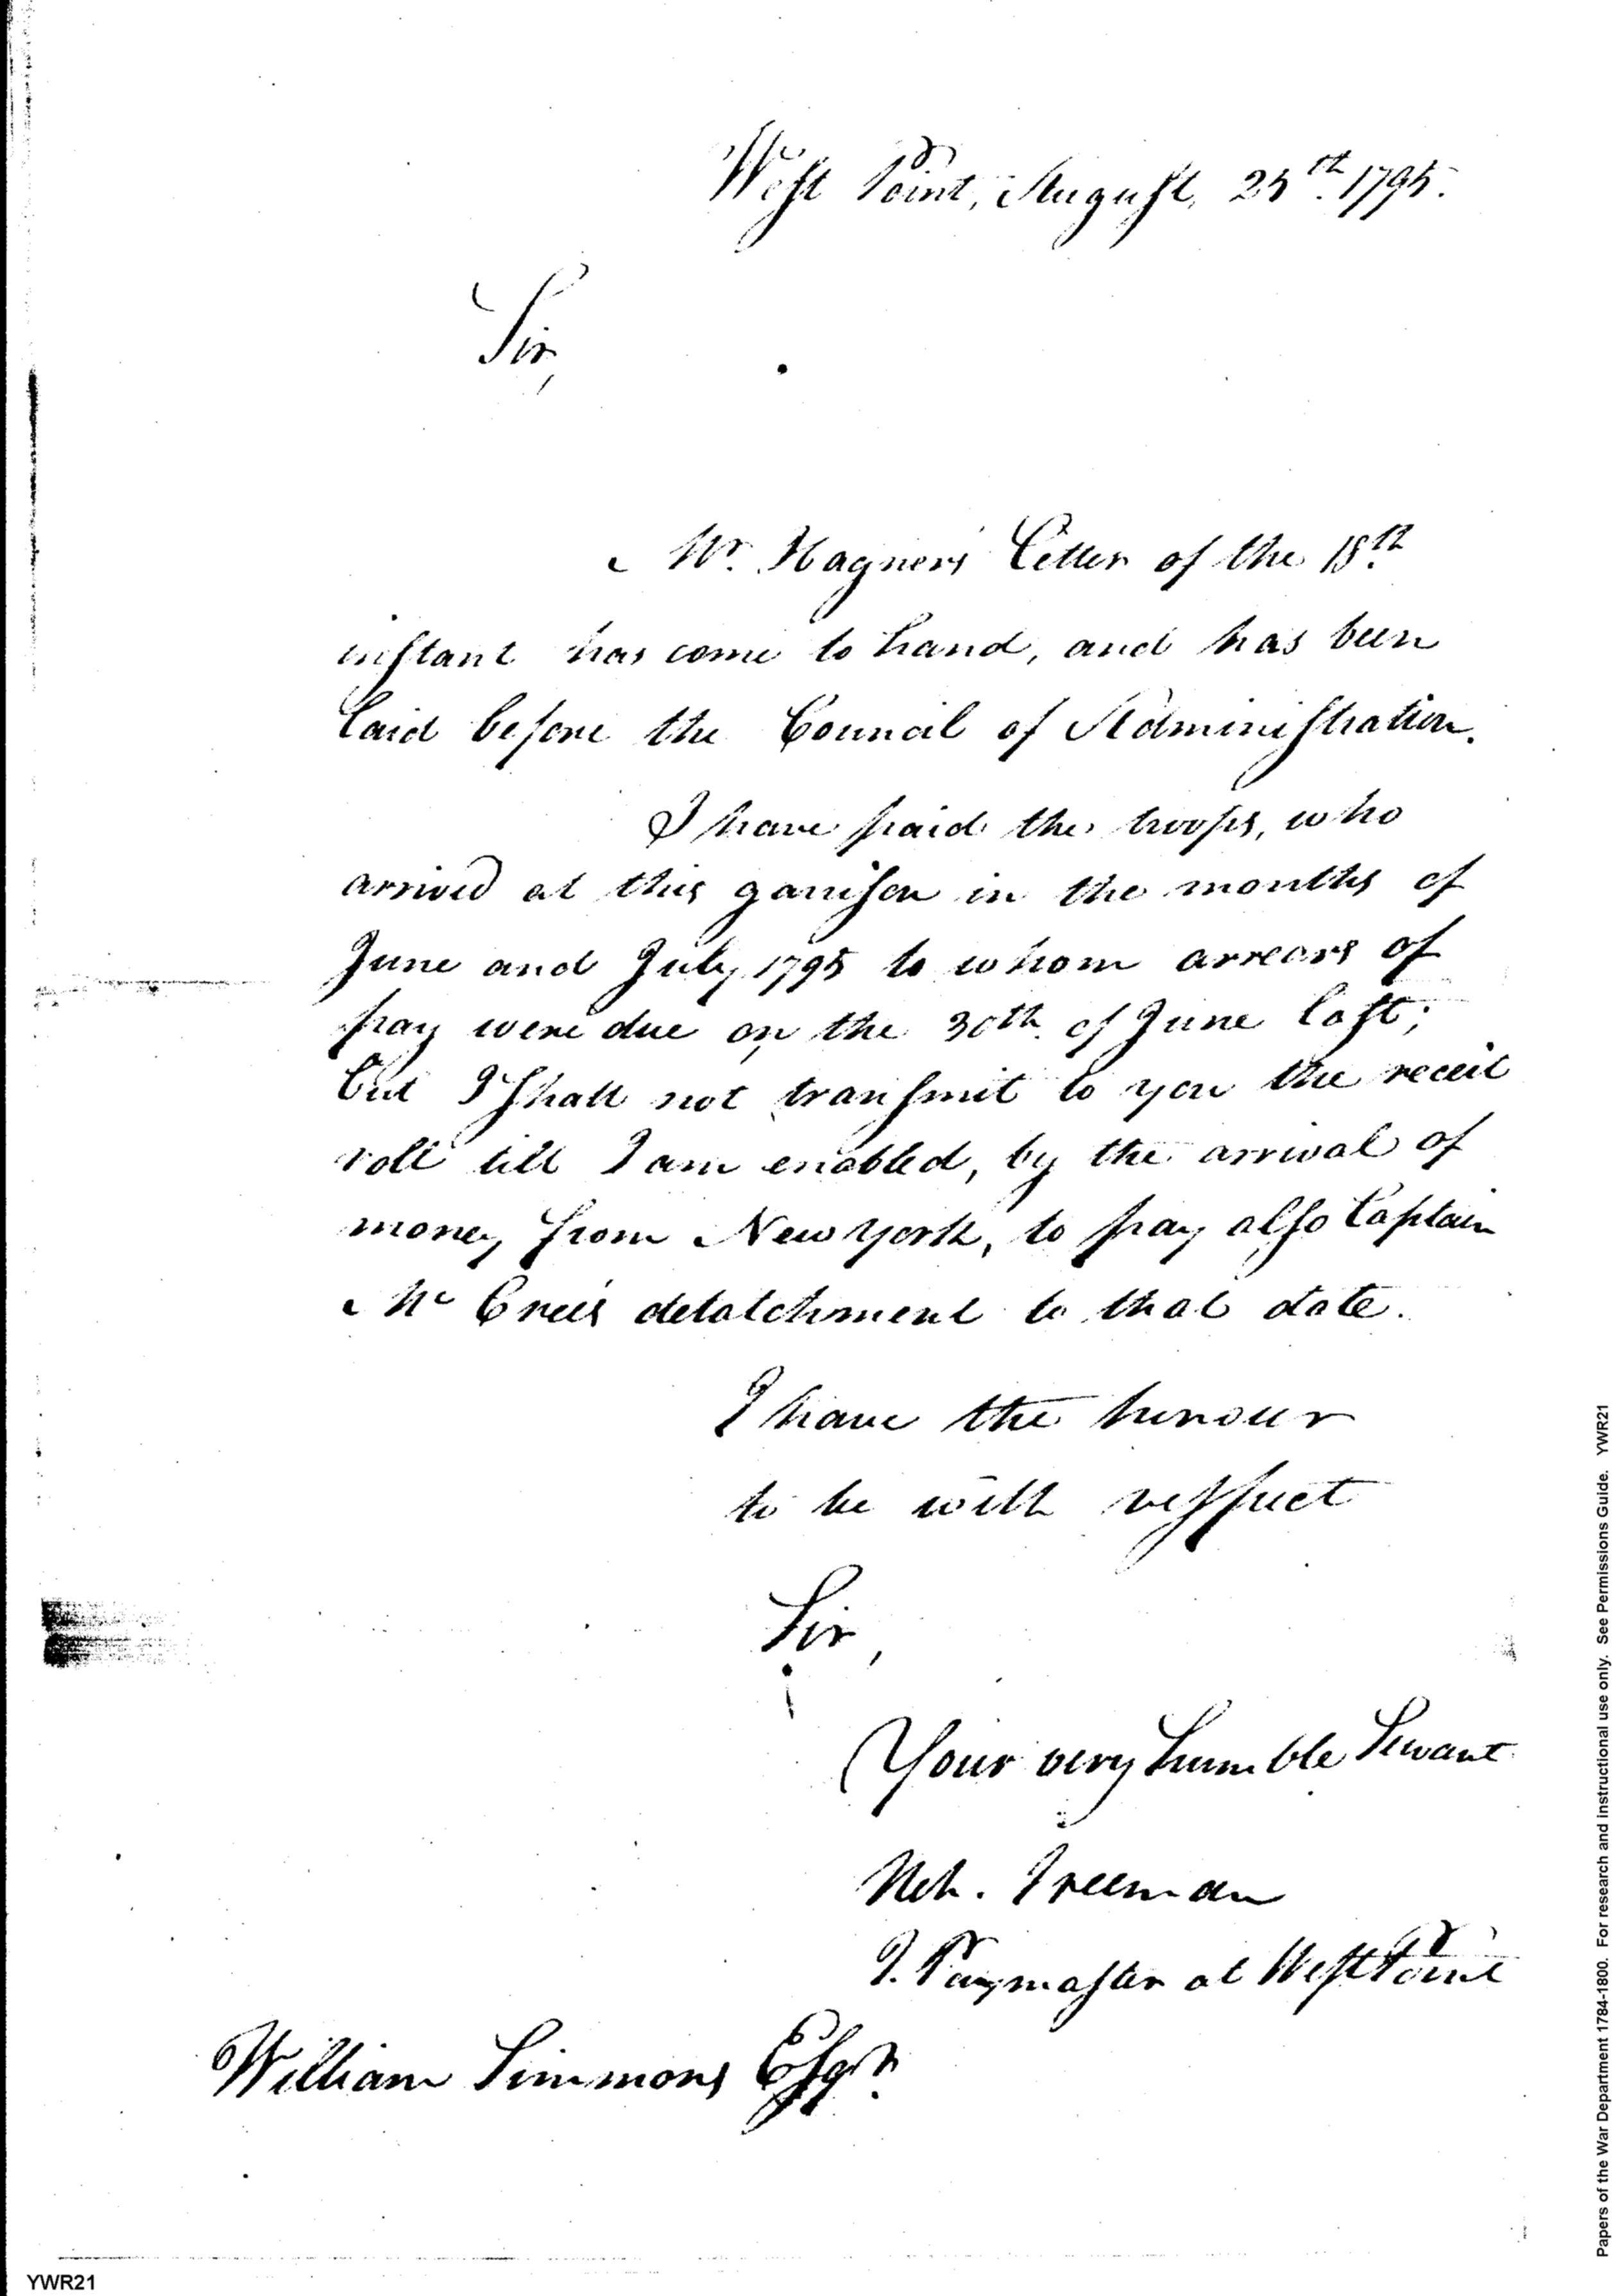 West Point, August, 25th. 1795.
Sir,
Mr. Hagner's Letter of the 18th.
instant has come to hand, and has been
laid before the Council of Administration.
I have paid the troops, who
arrived at this garrison in the months of
June and July 1795 to whom arrears of
pay were due on the 30th. of June last;
but I shall not transmit to you the receit
roll till I am enabled, by the arrival of
money from New York, to pay also Captain
Mc Cree's detatchment to that date.
I have the honour
to be with respect
Sir,
Your very humble Servant
Neh. Freeman
P. Paymaster at West Point
William Simmons Esqr.
YWR21
Papers of the War Department 1784-1800. For research and instructional use only. See Permissions Guide. YWR21